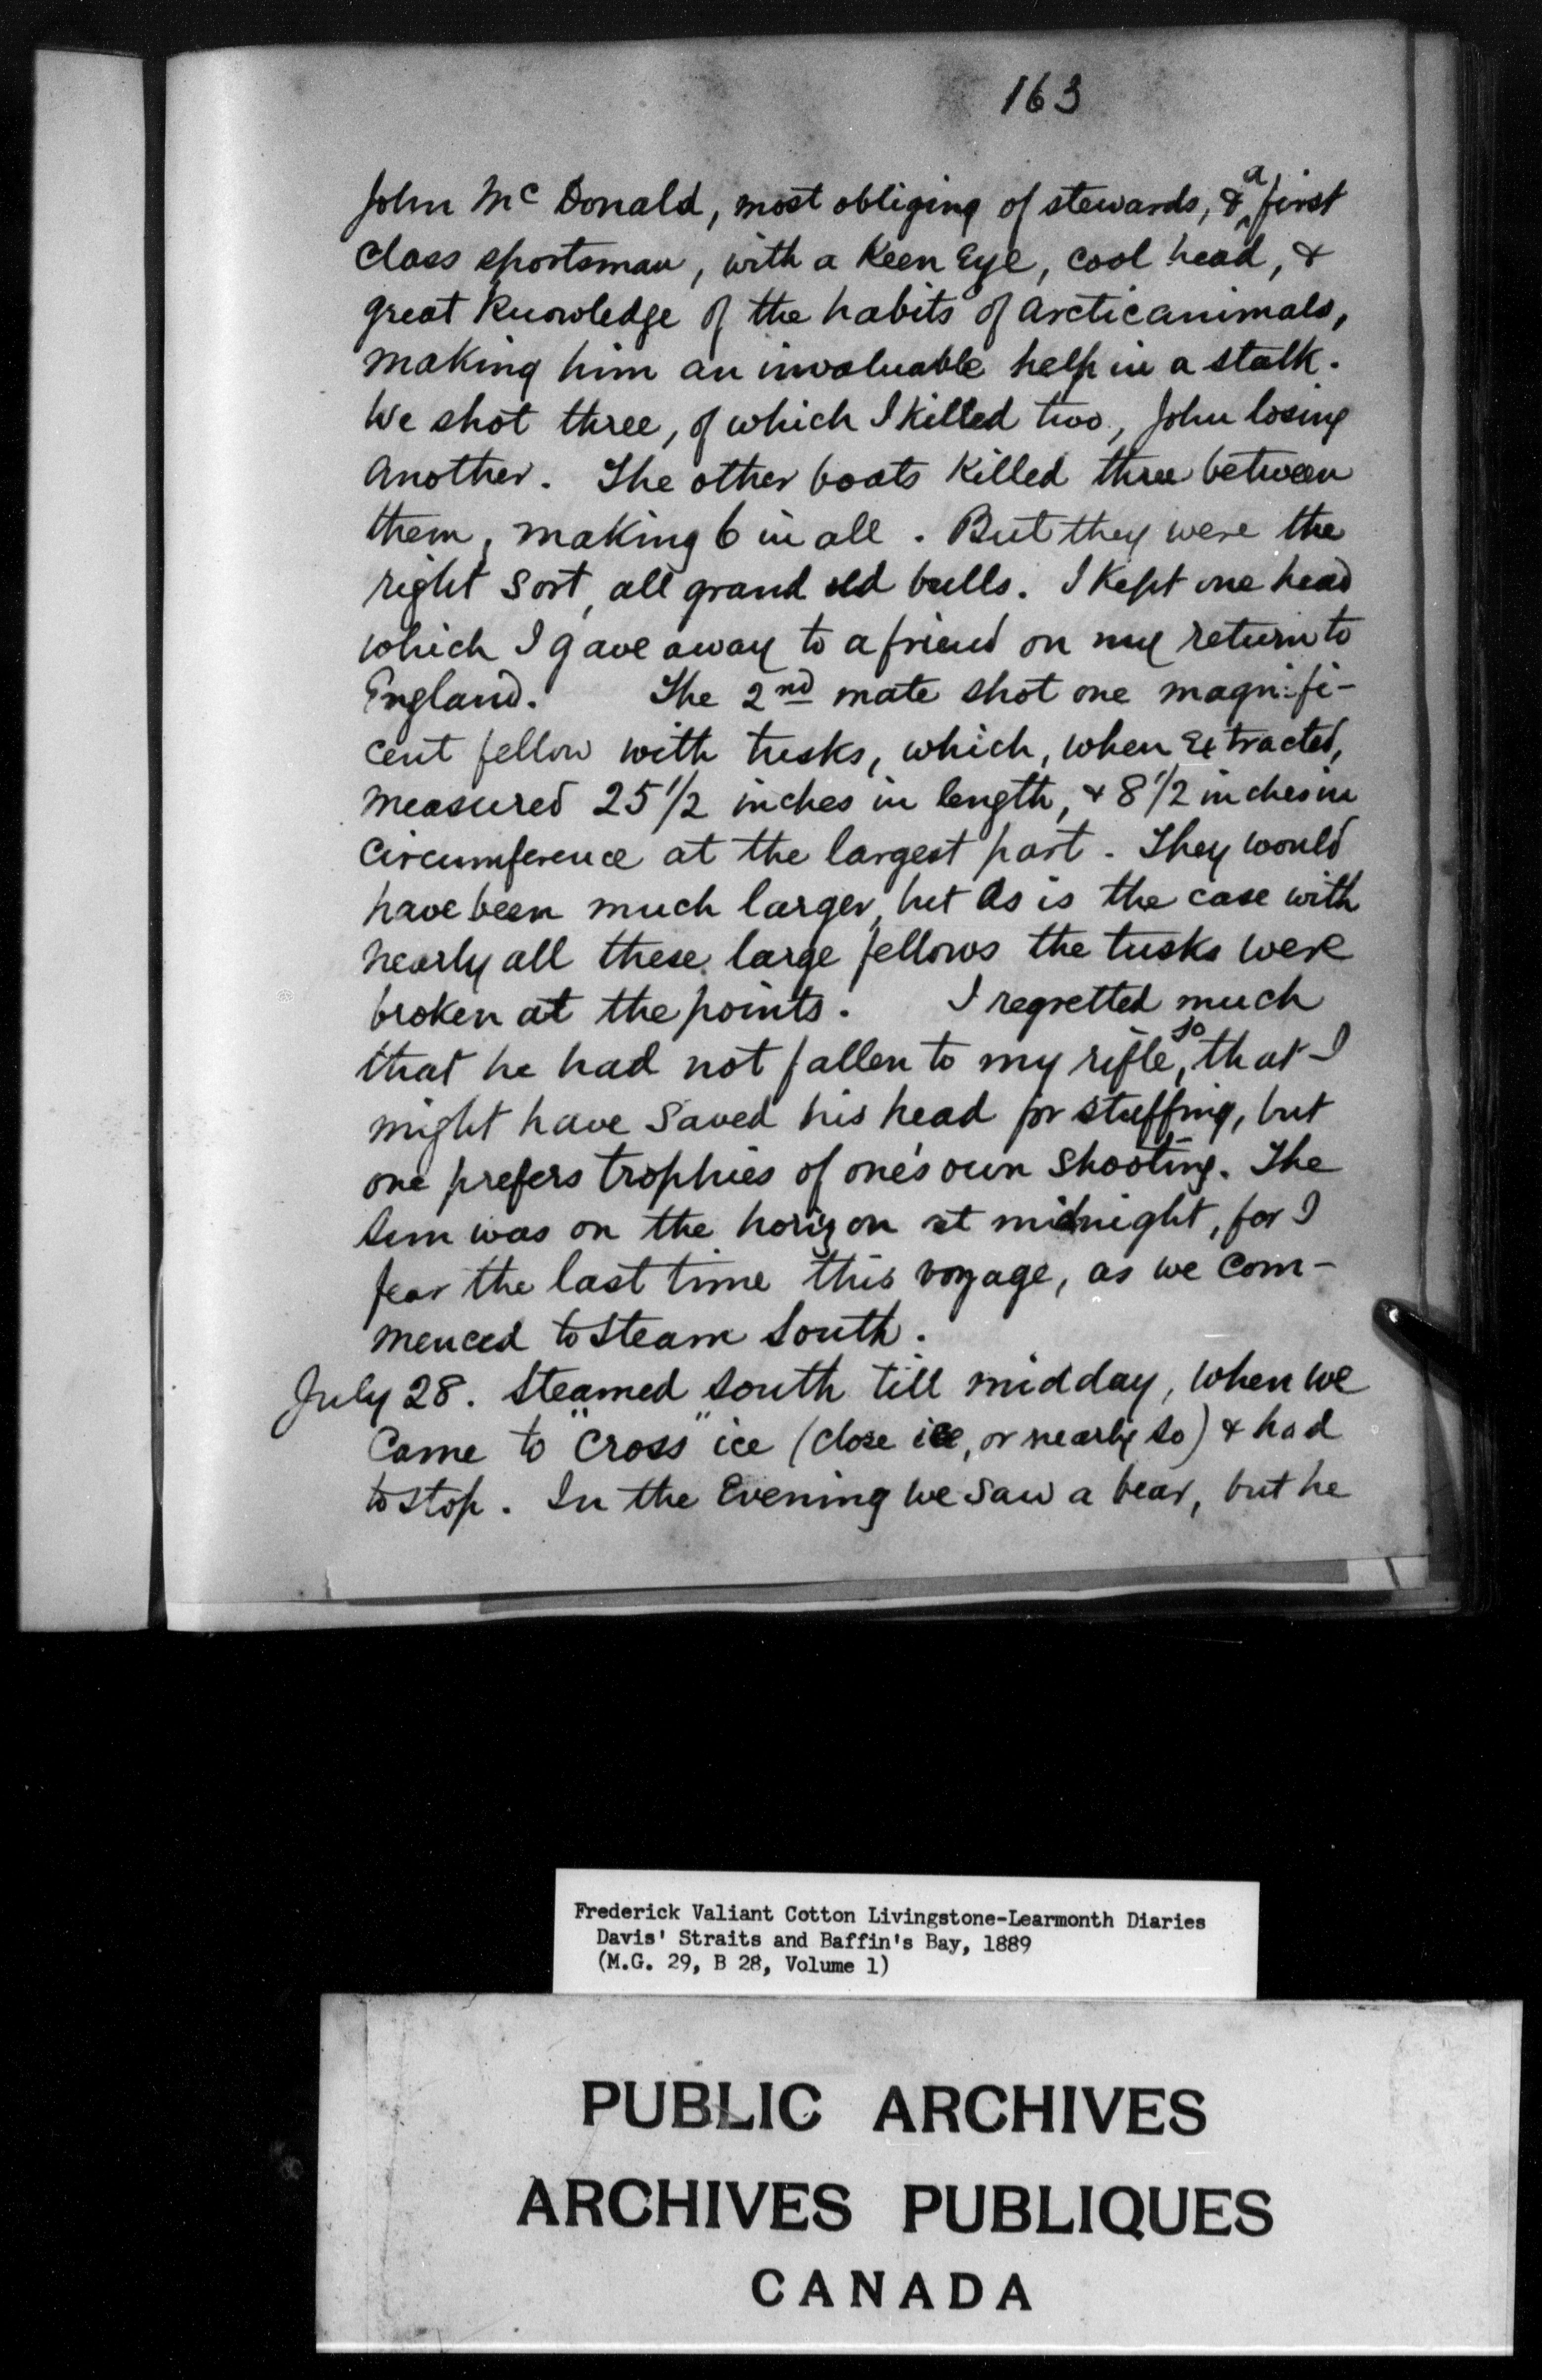 163
John Mc Donald, most obliging of stewards, & a first
class sportsman, with a keen eye, cool head, &
great knowledge of the habits of arctic animals,
making him an invaluable help in a stalk.
We shot three, of which I killed two, John losing
another. The other boats killed three between
them, making 6 in all. But they were the
right sort, all grand old bulls. I kept one head
which I gave away to a friend on my return to
England. The 2nd mate shot one magnifi-
cent fellow with tusks, which, when extracted,
measured 25 1/2 inches in length, & 8 1/2 inches in
circumference at the largest part. They would
have been much larger, but as is the case with
nearly all these large fellows the tusks were
broken at the points. I regretted much
that he had not fallen to my rifle, so that I
might have saved his head for stuffing, but
one prefers trophies of one's own shooting. The
sun was on the horizon at midnight, for I
fear the last time this voyage, as we com-
menced to steam South.
July 28. Steamed South till midday, when we
came to "cross" ice (close ice, or nearly so) & had
to stop. In the evening we saw a bear, but he
Frederick Valiant Cotton Livingstone-Learmonth Diaries
Davis' Straits and Baffin's Bay, 1889
(M.G. 29, B 28, Volume 1)
PUBLIC ARCHIVES
ARCHIVES PUBLIQUES
CANADA